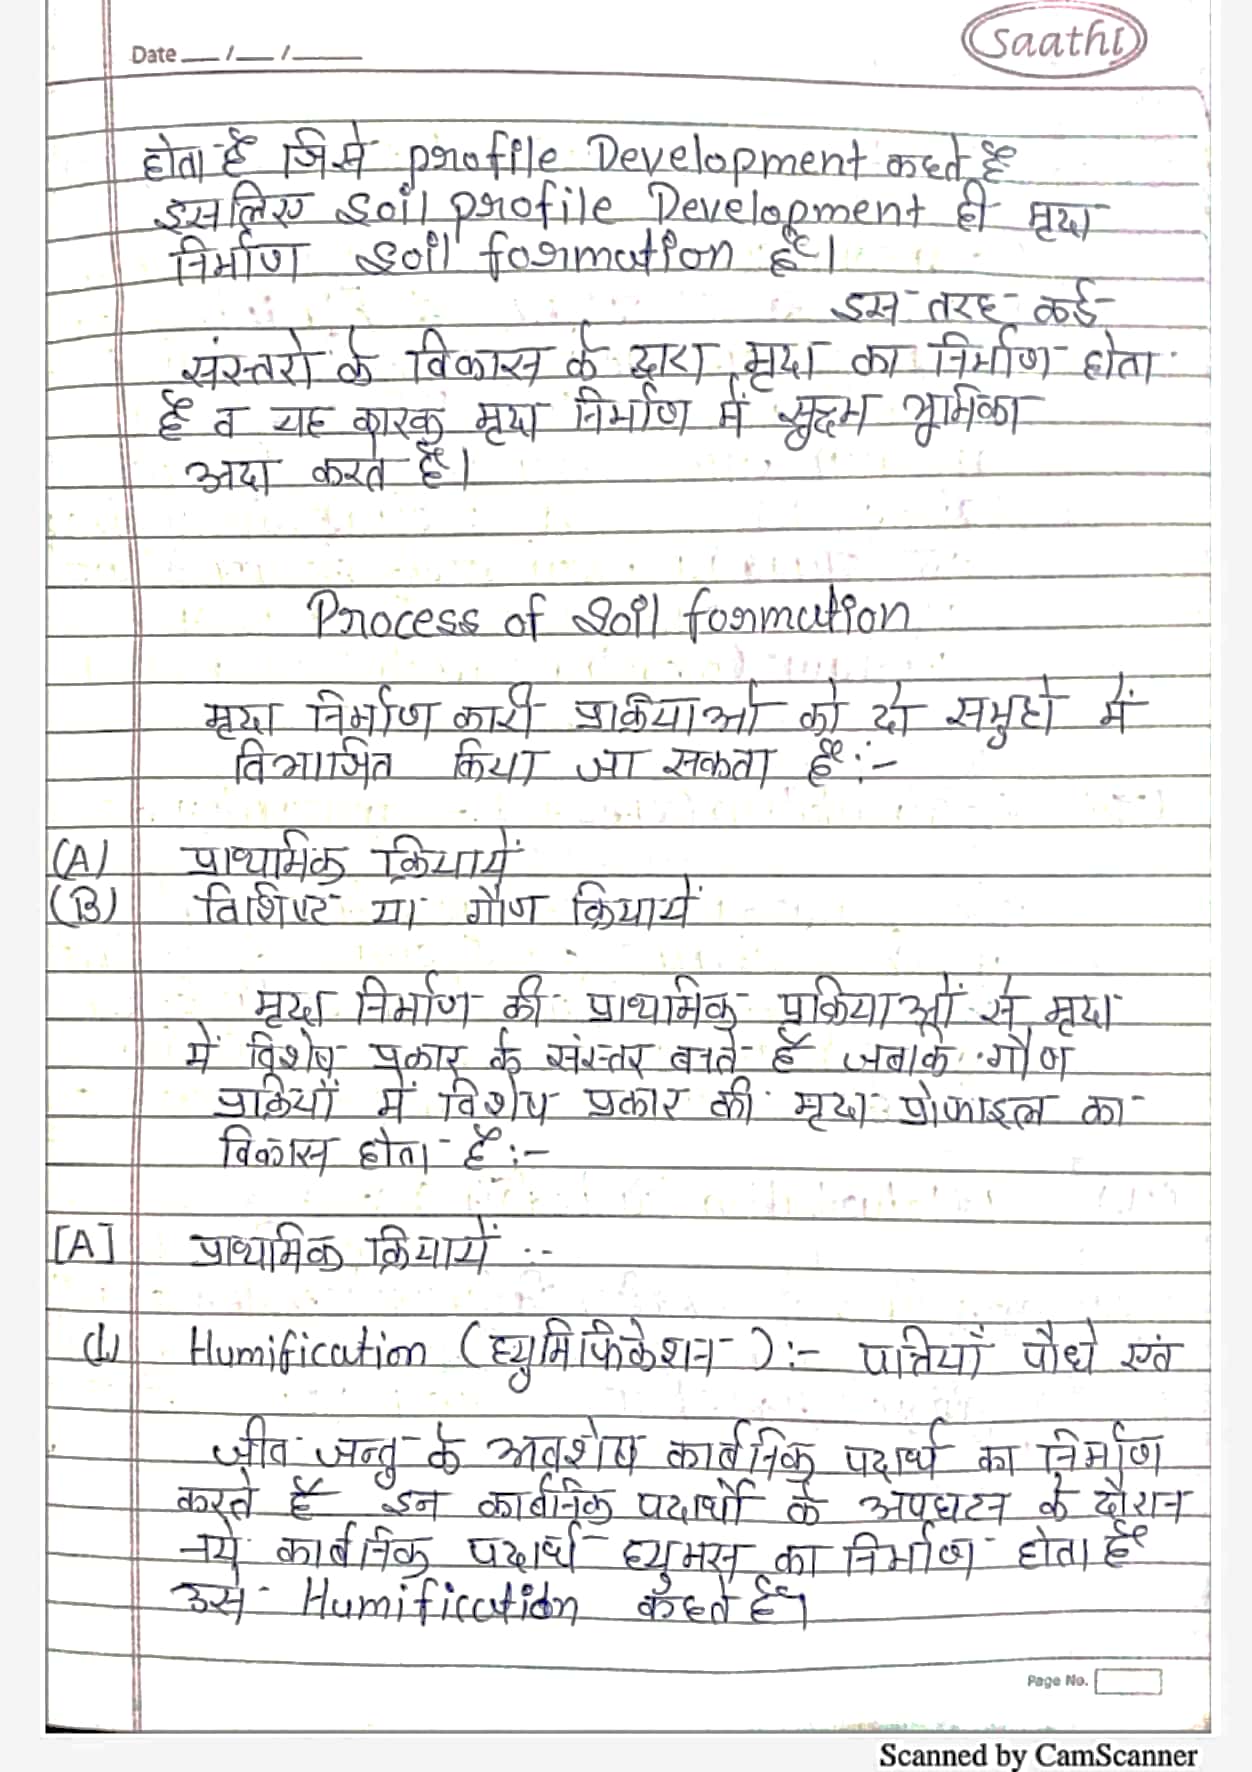 Date __/__/____
Saathi
होता है जिसे profile Development कहते है
इसलिए soil profile Development ही मृदा
निर्माण soil formation है।
इस तरह कई
संस्तरो के विकास के द्वारा मृदा का निर्माण होता
है व यह कारक मृदा निर्माण में सुक्ष्म भूमिका
अदा करते है।
Process of soil formation
मृदा निर्माण कारी प्रक्रियाओ को दो समुहो में
विभाजित किया जा सकता है :-
(A) प्राथमिक क्रियायें
(B) विशिष्ट या गौण क्रियायें
मृदा निर्माण की प्राथमिक प्रक्रियाओं से मृदा
में विशेष प्रकार के संस्तर बनते है जबकि गौण
प्रक्रियों में विशेष प्रकार की मृदा प्रोफाइल का
विकास होता है :-
[A] प्राथमिक क्रियायें :-
(1) Humification (ह्युमिफिकेशन) :- पत्तियाँ पौधे एंव
जीव जन्तु के अवशेष कार्बनिक पदार्थ का निर्माण
करते हैं इन कार्बनिक पदार्थो के अपघटन के दौरान
नये कार्बनिक पदार्थ ह्युमस का निर्माण होता है
उसे Humification कहते है।
Page No.
Scanned by CamScanner